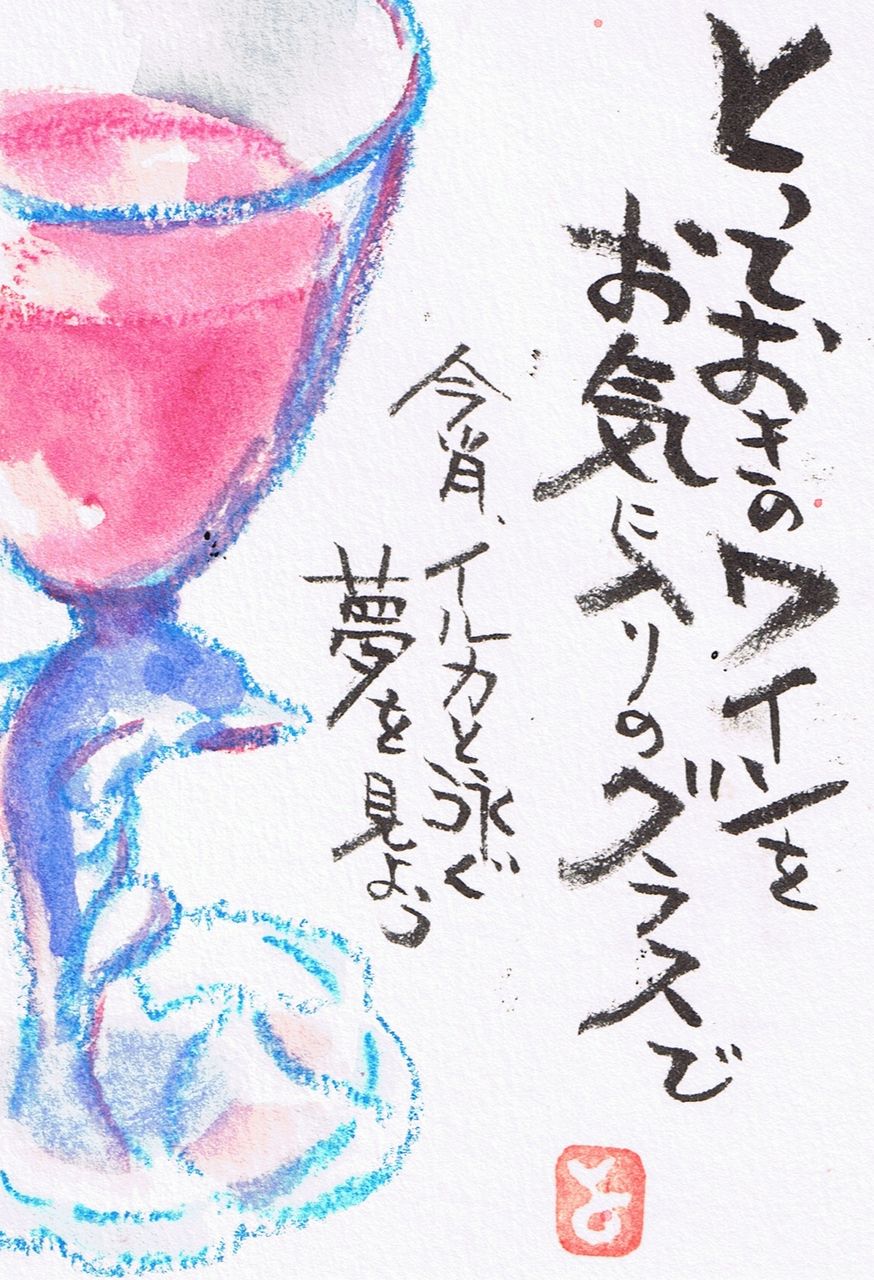 とっておきのワインを
お気に入りのグラスで
今宵、イルカと泳ぐ
夢を見よう
と